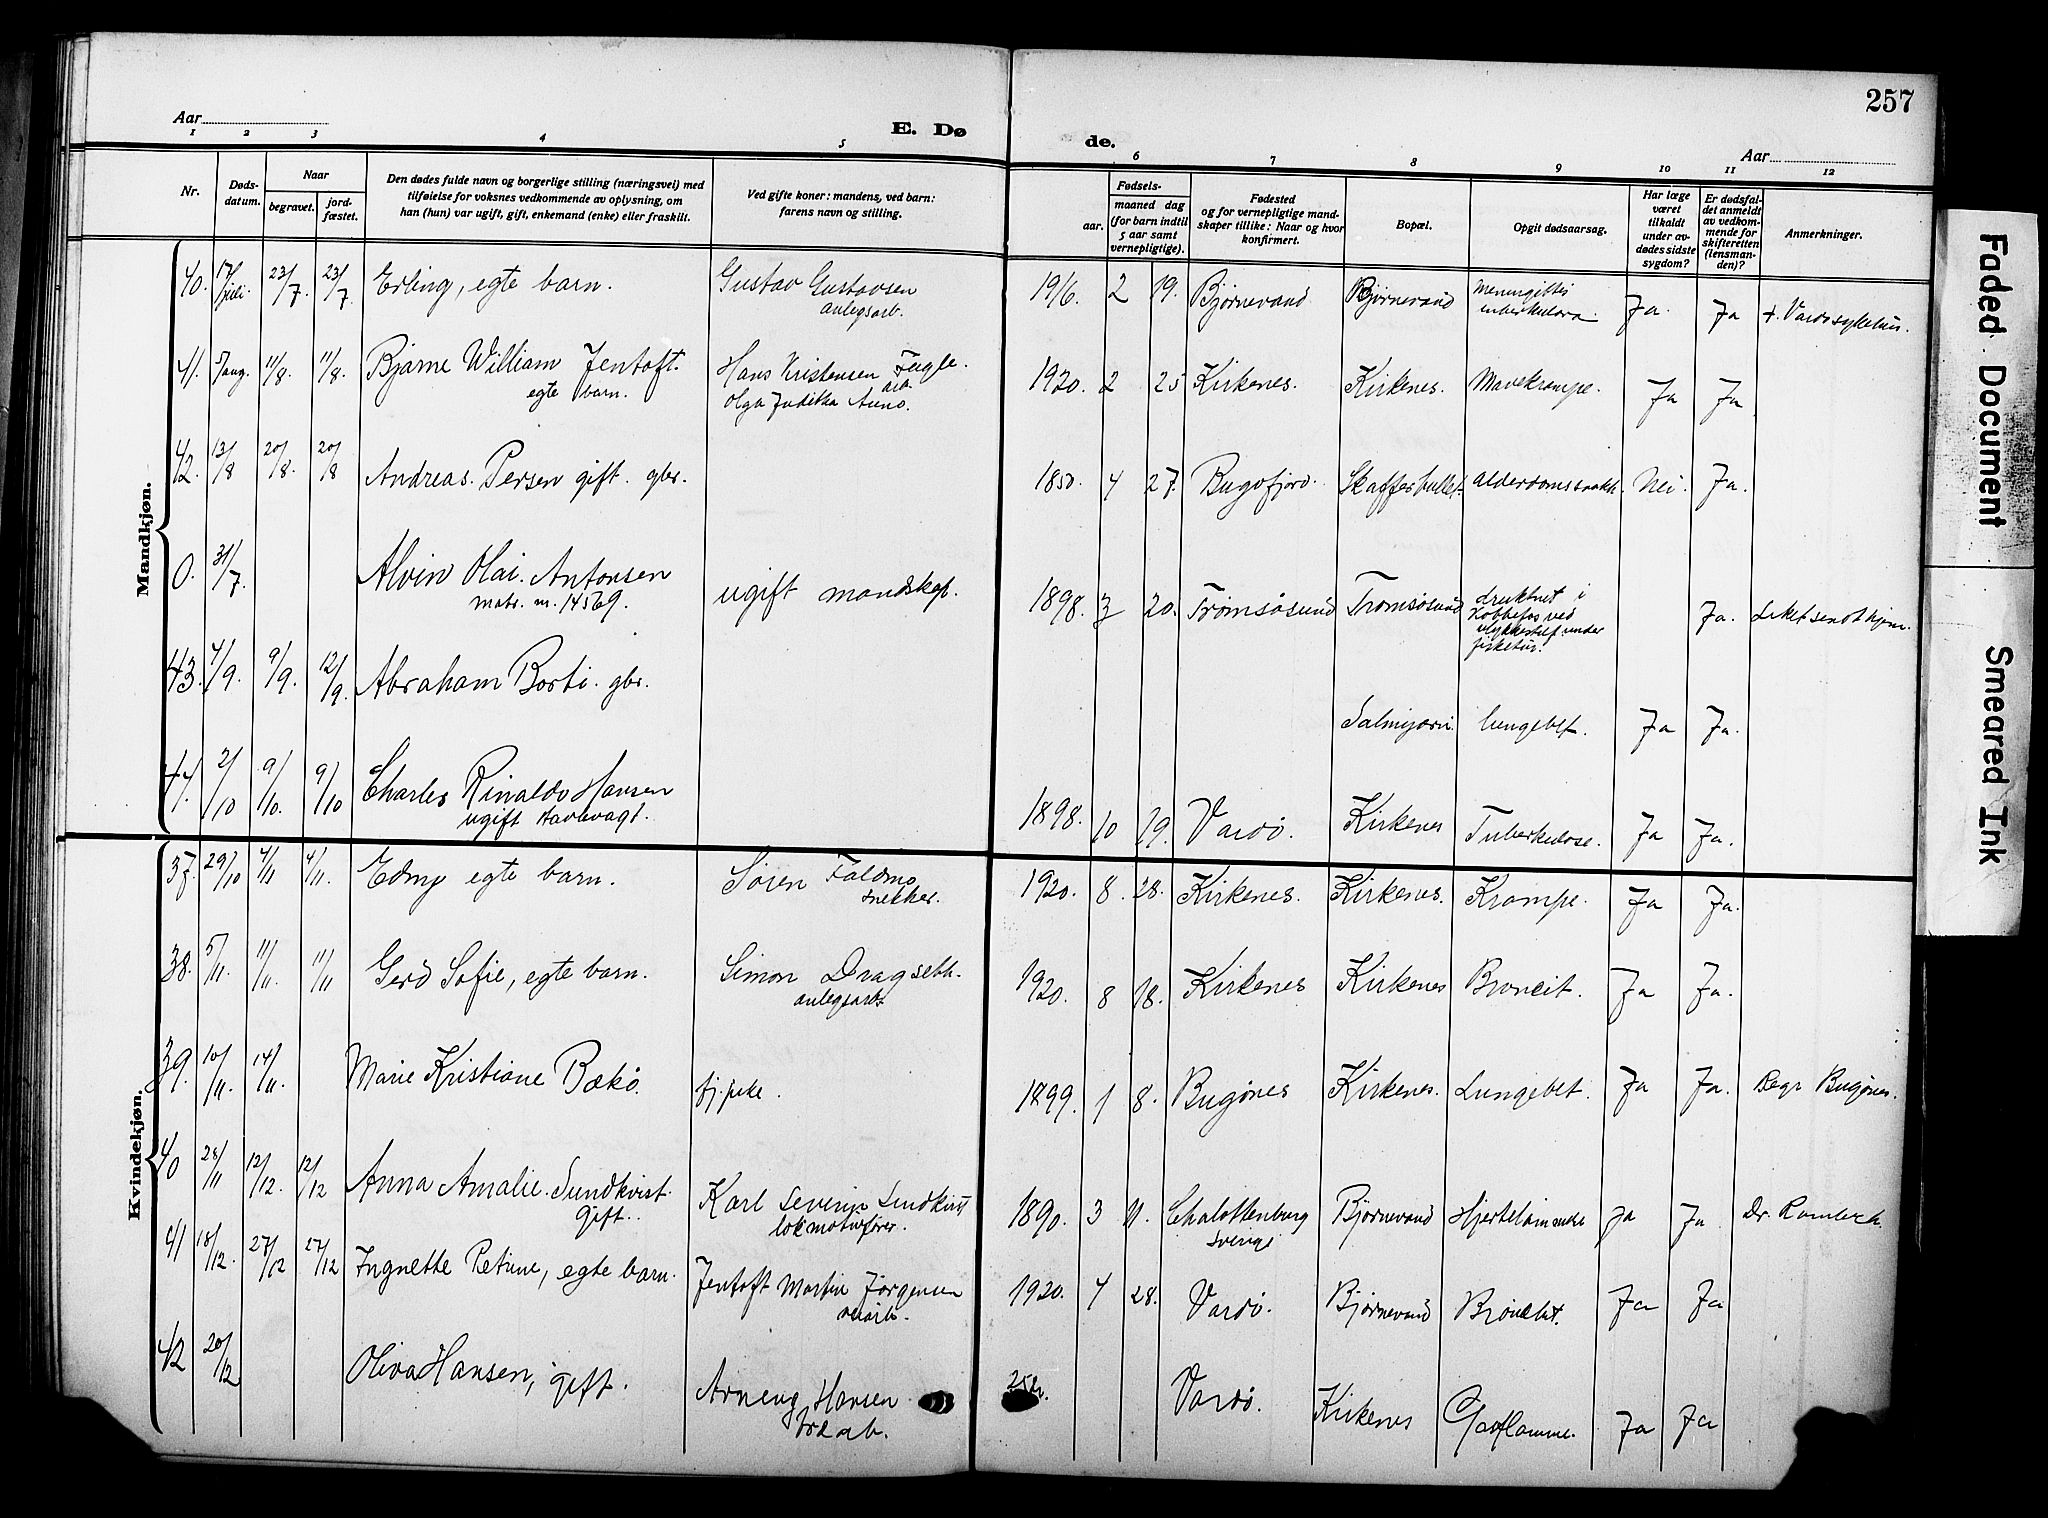 257
Aar
E. Dø
de.
Aar
1 2 3 4 5 6 7 8 9 10 11 12
Nr.
Døds-
datum.
Naar
begravet.
jord-
fæstet.
Den dødes fulde navn og borgerlige stilling (næringsvei) med
tilføielse for voksnes vedkommende av oplysning, om
han (hun) var ugift, gift, enkemand (enke) eller fraskilt.
Ved gifte koner: mandens, ved barn:
farens navn og stilling.
Fødsels-
aar.
maaned dag
(for barn indtil
5 aar samt
vernepligtige).
Fødested
og for vernepligtige mand-
skaper tillike: Naar og hvor
konfirmert.
Bopæl.
Opgit dødsaarsag.
Har læge
været
tilkaldt
under av-
dødes sidste
sygdom?
Er dødsfal-
det anmeldt
av vedkom-
mende for
skifteretten
(lensman-
den)?
Anmerkninger.
Mandkjøn.
40. 17/juli. 23/7. 23/7. Erling, egte barn. Gustav Gustavsen
anlegsarb.
1916. 2 19. Bjørnevand Bjørnevand Ja. Ja + Vardø sykehus.
41. 5/aug. 11/8. 11/8. Bjarne William Jentoft.
egte barn.
Hans Kristensen Fugle.
arb.
Olga Juditha Auno.
1920. 2 25 Kirkenes. Kirkenes. Mavekrampe. Ja Ja
42. 13/8 20/8. 20/8 Andreas. Persen gift. gbr.
1850. 4 27. Bugøfjord. Nei. Ja.
0. 31/7. Alvin Olai. Antonsen
matr. nr. 14569.
ugift mandskap.
1898. 3 20. Tromsøsund Tromsøsund druknet i
Kobbefos ved
ulykkestilf under
fisketur.
Ja. Liket sendt hjem.
43. 4/9. 9/9. 12/9. Abraham Borti. gbr.
Salmijarvi Lungebet. Ja Ja.
44. 2/10 9/10. 9/10 Charles Rinaldo Hansen
ugift
1898. 10 29. Vardø. Kirkenes Tuberkulose. Ja Ja.
Kvindekjøn.
37. 29/10 4/11 4/11. Edny egte barn. Søren Foldmo
snekker.
1920. 8. 28. Kirkenes. Kirkenes. Krampe. Ja Ja.
38. 5/11. 11/11. 11/11 Gerd Sofie, egte barn. Simon Dragseth.
anlegsarb.
1920. 8 18. Kirkenes Kirkenes Broncit. Ja Ja.
39. 10/11. 14/11. Marie Kristiane Bækø. fj. pike.
1899. 1 8. Bugønes Kirkenes. Lungebet. Ja Ja. Begr Bugønes.
40 28/11 12/12. 12/12 Anna Amalie. Sundkvist.
gift..
Karl Severin Sundkvist
lokmotivfører.
1890. 3 11. Chalottenburg
Sverige
Bjørnevand Hjertelammelse Ja Ja Dr.
41 18/12. 27/12 27/12 Ingnette Petrine, egte barn. Jentoft Martin Jørgensen
1920. 4 28. Vardø. Bjørnevand Ja Ja
42 20/12 Oliva Hansen, gift. Hansen
25 år. Vardø. Kirkenes Ja Ja
Faded Document
Smeared Ink